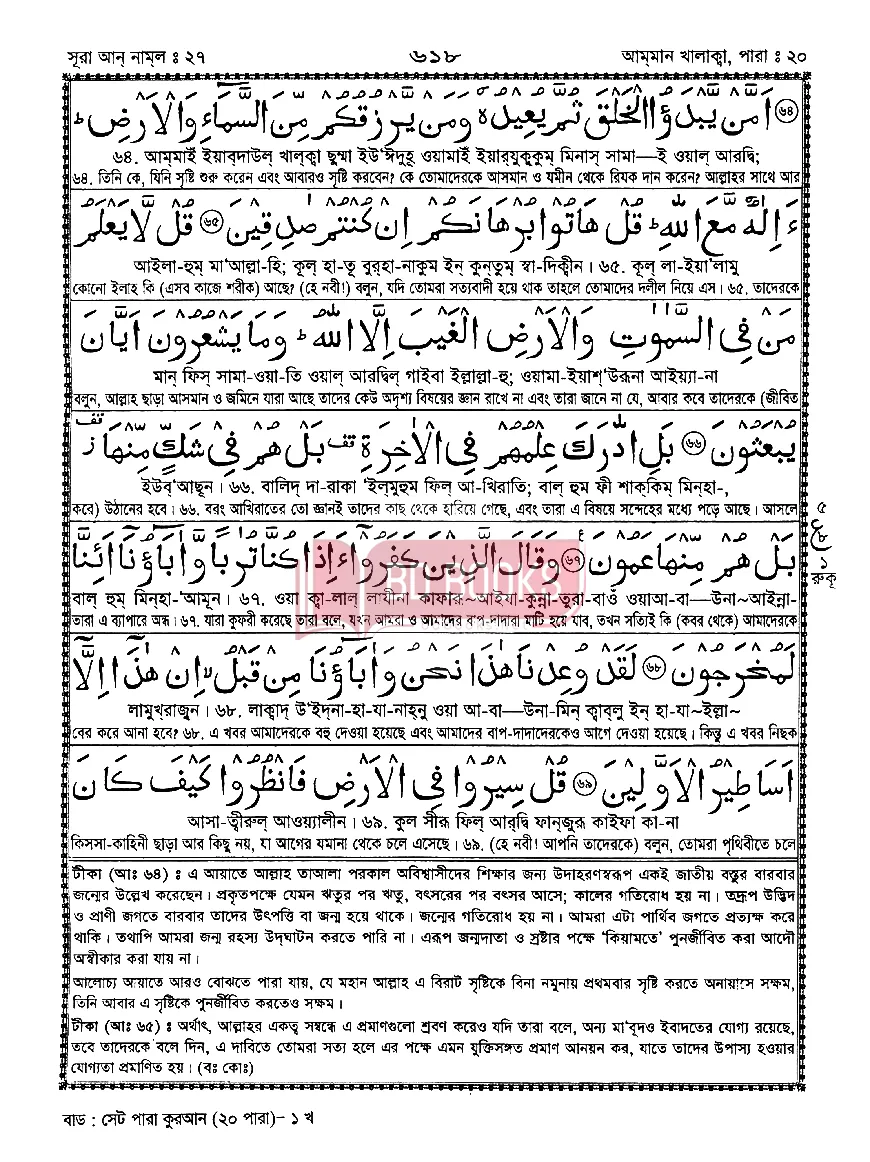 সূরা আন্ নাম্‌ল ঃ ২৭
৬১৮
আম্‌মান খালাক্বা, পারা ঃ ২০
۶۴ اَمَّنْ يَّبْدَؤُا الْخَلْقَ ثُمَّ يُعِيْدُهٗ وَمَنْ يَّرْزُقُكُمْ مِّنَ السَّمَآءِ وَالْاَرْضِ ؕ
৬৪. আম্মাইঁ ইয়াব্‌দাউল্ খাল্‌ক্বা ছুম্মা ইউ'ঈদুহূ ওয়ামাইঁ ইয়ার্‌যুকুকুম্ মিনাস্ সামা—ই ওয়াল্ আরদ্বি;
৬৪. তিনি কে, যিনি সৃষ্টি শুরু করেন এবং আবারও সৃষ্টি করবেন? কে তোমাদেরকে আসমান ও যমীন থেকে রিযক দান করেন? আল্লাহর সাথে আর
ءَ اِلٰهٌ مَّعَ اللّٰهِ ؕ قُلْ هَاتُوْا بُرْهَانَكُمْ اِنْ كُنْتُمْ صٰدِقِيْنَ ৬৫ قُلْ لَّا يَعْلَمُ
আইলা-হুম্ মা'আল্লা-হি; কূল্ হা-তূ বুর্‌হা-নাকুম্ ইন্ কুন্‌তুম্ স্বা-দিক্বীন। ৬৫. কূল্ লা-ইয়া'লামু
কোনো ইলাহ কি (এসব কাজে শরীক) আছে? (হে নবী!) বলুন, যদি তোমরা সত্যবাদী হয়ে থাক তাহলে তোমাদের দলীল নিয়ে এস। ৬৫. তাদেরকে
مَنْ فِى السَّمٰوٰتِ وَالْاَرْضِ الْغَيْبَ اِلَّا اللّٰهُ ؕ وَمَا يَشْعُرُوْنَ اَيَّانَ
মান্ ফিস্ সামা-ওয়া-তি ওয়াল্ আরদ্বিল্ গাইবা ইল্লাল্লা-হু; ওয়ামা-ইয়াশ্'উরূনা আইয়্যা-না
বলুন, আল্লাহ ছাড়া আসমান ও জমিনে যারা আছে তাদের কেউ অদৃশ্য বিষয়ের জ্ঞান রাখে না এবং তারা জানে না যে, আবার কবে তাদেরকে (জীবিত
يُبْعَثُوْنَ ৬৬ بَلِ ادّٰرَكَ عِلْمُهُمْ فِى الْاٰخِرَةِ قف بَلْ هُمْ فِىْ شَكٍّ مِّنْهَا ز قف
ইউব্'আছূন। ৬৬. বালিদ্ দা-রাকা 'ইল্‌মুহুম্ ফিল্ আ-খিরাতি; বাল্ হুম ফী শাক্‌কিম্ মিন্‌হা-,
কবে) উঠানের হবে। ৬৬. বরং আখিরাতের তো জ্ঞানই তাদের কাছ থেকে হারিয়ে গেছে, এবং তারা এ বিষয়ে সন্দেহের মধ্যে পড়ে আছে। আসলে
بَلْ هُمْ مِّنْهَا عَمُوْنَ ৬৭ وَقَالَ الَّذِيْنَ كَفَرُوْٓا ءَاِذَا كُنَّا تُرٰبًا وَّاٰبَآؤُنَآ اَئِنَّا
৫
ع
৮
১
রুকূ
BD BOOKS
বাল্ হুম্ মিন্‌হা-'আমূন। ৬৭. ওয়া ক্বা-লাল্ লাযীনা কাফারূ~আইযা-কুন্না-তুরা-বাওঁ ওয়াআ-বা—উনা~আইন্না-
তারা এ ব্যাপারে অন্ধ। ৬৭. যারা কুফরী করেছে তারা বলে, যখন আমরা ও আমাদের বাপ-দাদারা মাটি হয়ে যাব, তখন সত্যিই কি (কবর থেকে) আমাদেরকে
لَمُخْرَجُوْنَ ৬৮ لَقَدْ وُعِدْنَا هٰذَا نَحْنُ وَاٰبَآؤُنَا مِنْ قَبْلُ ۙ اِنْ هٰذَآ اِلَّآ
লামুখ্‌রাজূন। ৬৮. লাক্বাদ্ উ'ইদ্‌না-হা-যা-নাহ্‌নু ওয়া আ-বা—উনা-মিন্ ক্বাব্‌লু ইন্ হা-যা~ইল্লা~
বের করে আনা হবে? ৬৮. এ খবর আমাদেরকে বহু দেওয়া হয়েছে এবং আমাদের বাপ-দাদাদেরকেও আগে দেওয়া হয়েছে। কিন্তু এ খবর নিছক
اَسَاطِيْرُ الْاَوَّلِيْنَ ৬৯ قُلْ سِيْرُوْا فِى الْاَرْضِ فَانْظُرُوْا كَيْفَ كَانَ
আসা-ত্বীরুল্ আওয়্যালীন। ৬৯. কুল সীরূ ফিল্ আর্‌দ্বি ফান্‌জুরূ কাইফা কা-না
কিসসা-কাহিনী ছাড়া আর কিছু নয়, যা আগের যমানা থেকে চলে এসেছে। ৬৯. (হে নবী! আপনি তাদেরকে) বলুন, তোমরা পৃথিবীতে চলে
টীকা (আঃ ৬৪) ঃ এ আয়াতে আল্লাহ তাআলা পরকাল অবিশ্বাসীদের শিক্ষার জন্য উদাহরণস্বরূপ একই জাতীয় বস্তুর বারবার
জন্মের উল্লেখ করেছেন। প্রকৃতপক্ষে যেমন ঋতুর পর ঋতু, বৎসরের পর বৎসর আসে; কালের গতিরোধ হয় না। তদ্রূপ উদ্ভিদ
ও প্রাণী জগতে বারবার তাদের উৎপত্তি বা জন্ম হয়ে থাকে। জন্মের গতিরোধ হয় না। আমরা এটা পার্থিব জগতে প্রত্যক্ষ করে
থাকি। তথাপি আমরা জন্ম রহস্য উদ্‌ঘাটন করতে পারি না। এরূপ জন্মদাতা ও স্রষ্টার পক্ষে 'কিয়ামতে' পুনর্জীবিত করা আদৌ
অস্বীকার করা যায় না।
আলোচ্য আয়াতে আরও বোঝতে পারা যায়, যে মহান আল্লাহ এ বিরাট সৃষ্টিকে বিনা নমুনায় প্রথমবার সৃষ্টি করতে অনায়াসে সক্ষম,
তিনি আবার এ সৃষ্টিকে পুনর্জীবিত করতেও সক্ষম।
টীকা (আঃ ৬৫) ঃ অর্থাৎ, আল্লাহর একত্ব সম্বন্ধে এ প্রমাণগুলো শ্রবণ করেও যদি তারা বলে, অন্য মা'বূদও ইবাদতের যোগ্য রয়েছে,
তবে তাদেরকে বলে দিন, এ দাবিতে তোমরা সত্য হলে এর পক্ষে এমন যুক্তিসঙ্গত প্রমাণ আনয়ন কর, যাতে তাদের উপাস্য হওয়ার
যোগ্যতা প্রমাণিত হয়। (বঃ কোঃ)
বাড : সেট পারা কুরআন (২০ পারা)– ১ খ